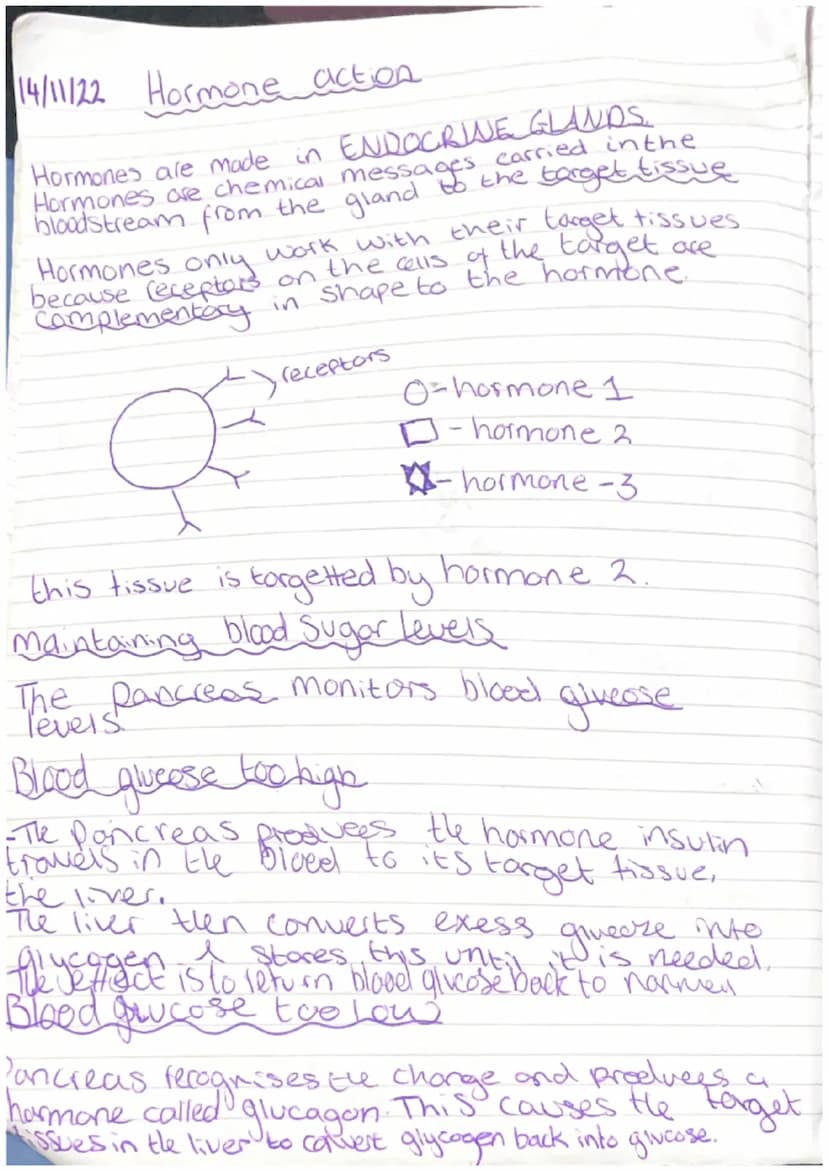 14/11/22 Hormone action
Hormones are made in ENDOCRINE GLANDS.
Hormones are chemical messages carried in the
bloodstream from the gland to the target tissue
Hormones only work with their target tissues
because receptors on the cells of the target are
complementary in shape to the hormone.
receptors
O=hormone 1
- hormone 2
- hormone -3
this tissue is targetted by hormone 2.
Maintaining blood Sugar levels
The Pancreas monitors blood glucose
levels
Blood glucose too high
-The Pancreas produces the hormone insulin
travels in the blood to its target tissue,
the liver.
The liver then converts exess glucose into
glycogen & stores this until it is needed.
The effect is to return blood glucose back to normal
Blood glucose too low
Pancreas recognises the change and produces a
hormone called glucagon. This causes the target
tissues in the liver to convert glycogen back into glucose.